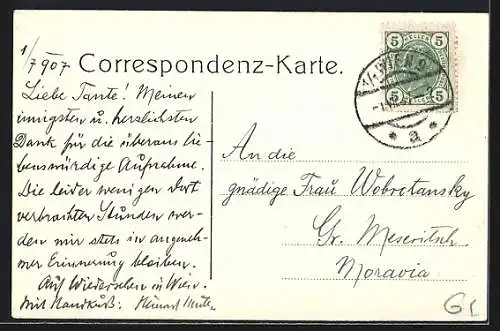 1/7 907
Correspondenz-Karte.
Liebe Tante! Meinen
innigsten u. herzlichsten
Dank für die überaus lie-
benswürdige Aufnahme.
Die leider wenigen dort
verbrachten Stunden wer-
den mir stets in angeneh-
mer Erinnerung bleiben.
Auf Wiedersehen in Wien.
Mit Handkuß:
5 5
5 5
WIEN 9
* a *
An die
gnädige Frau Wobretansky
Gr. Meseritsch
Moravia
GL